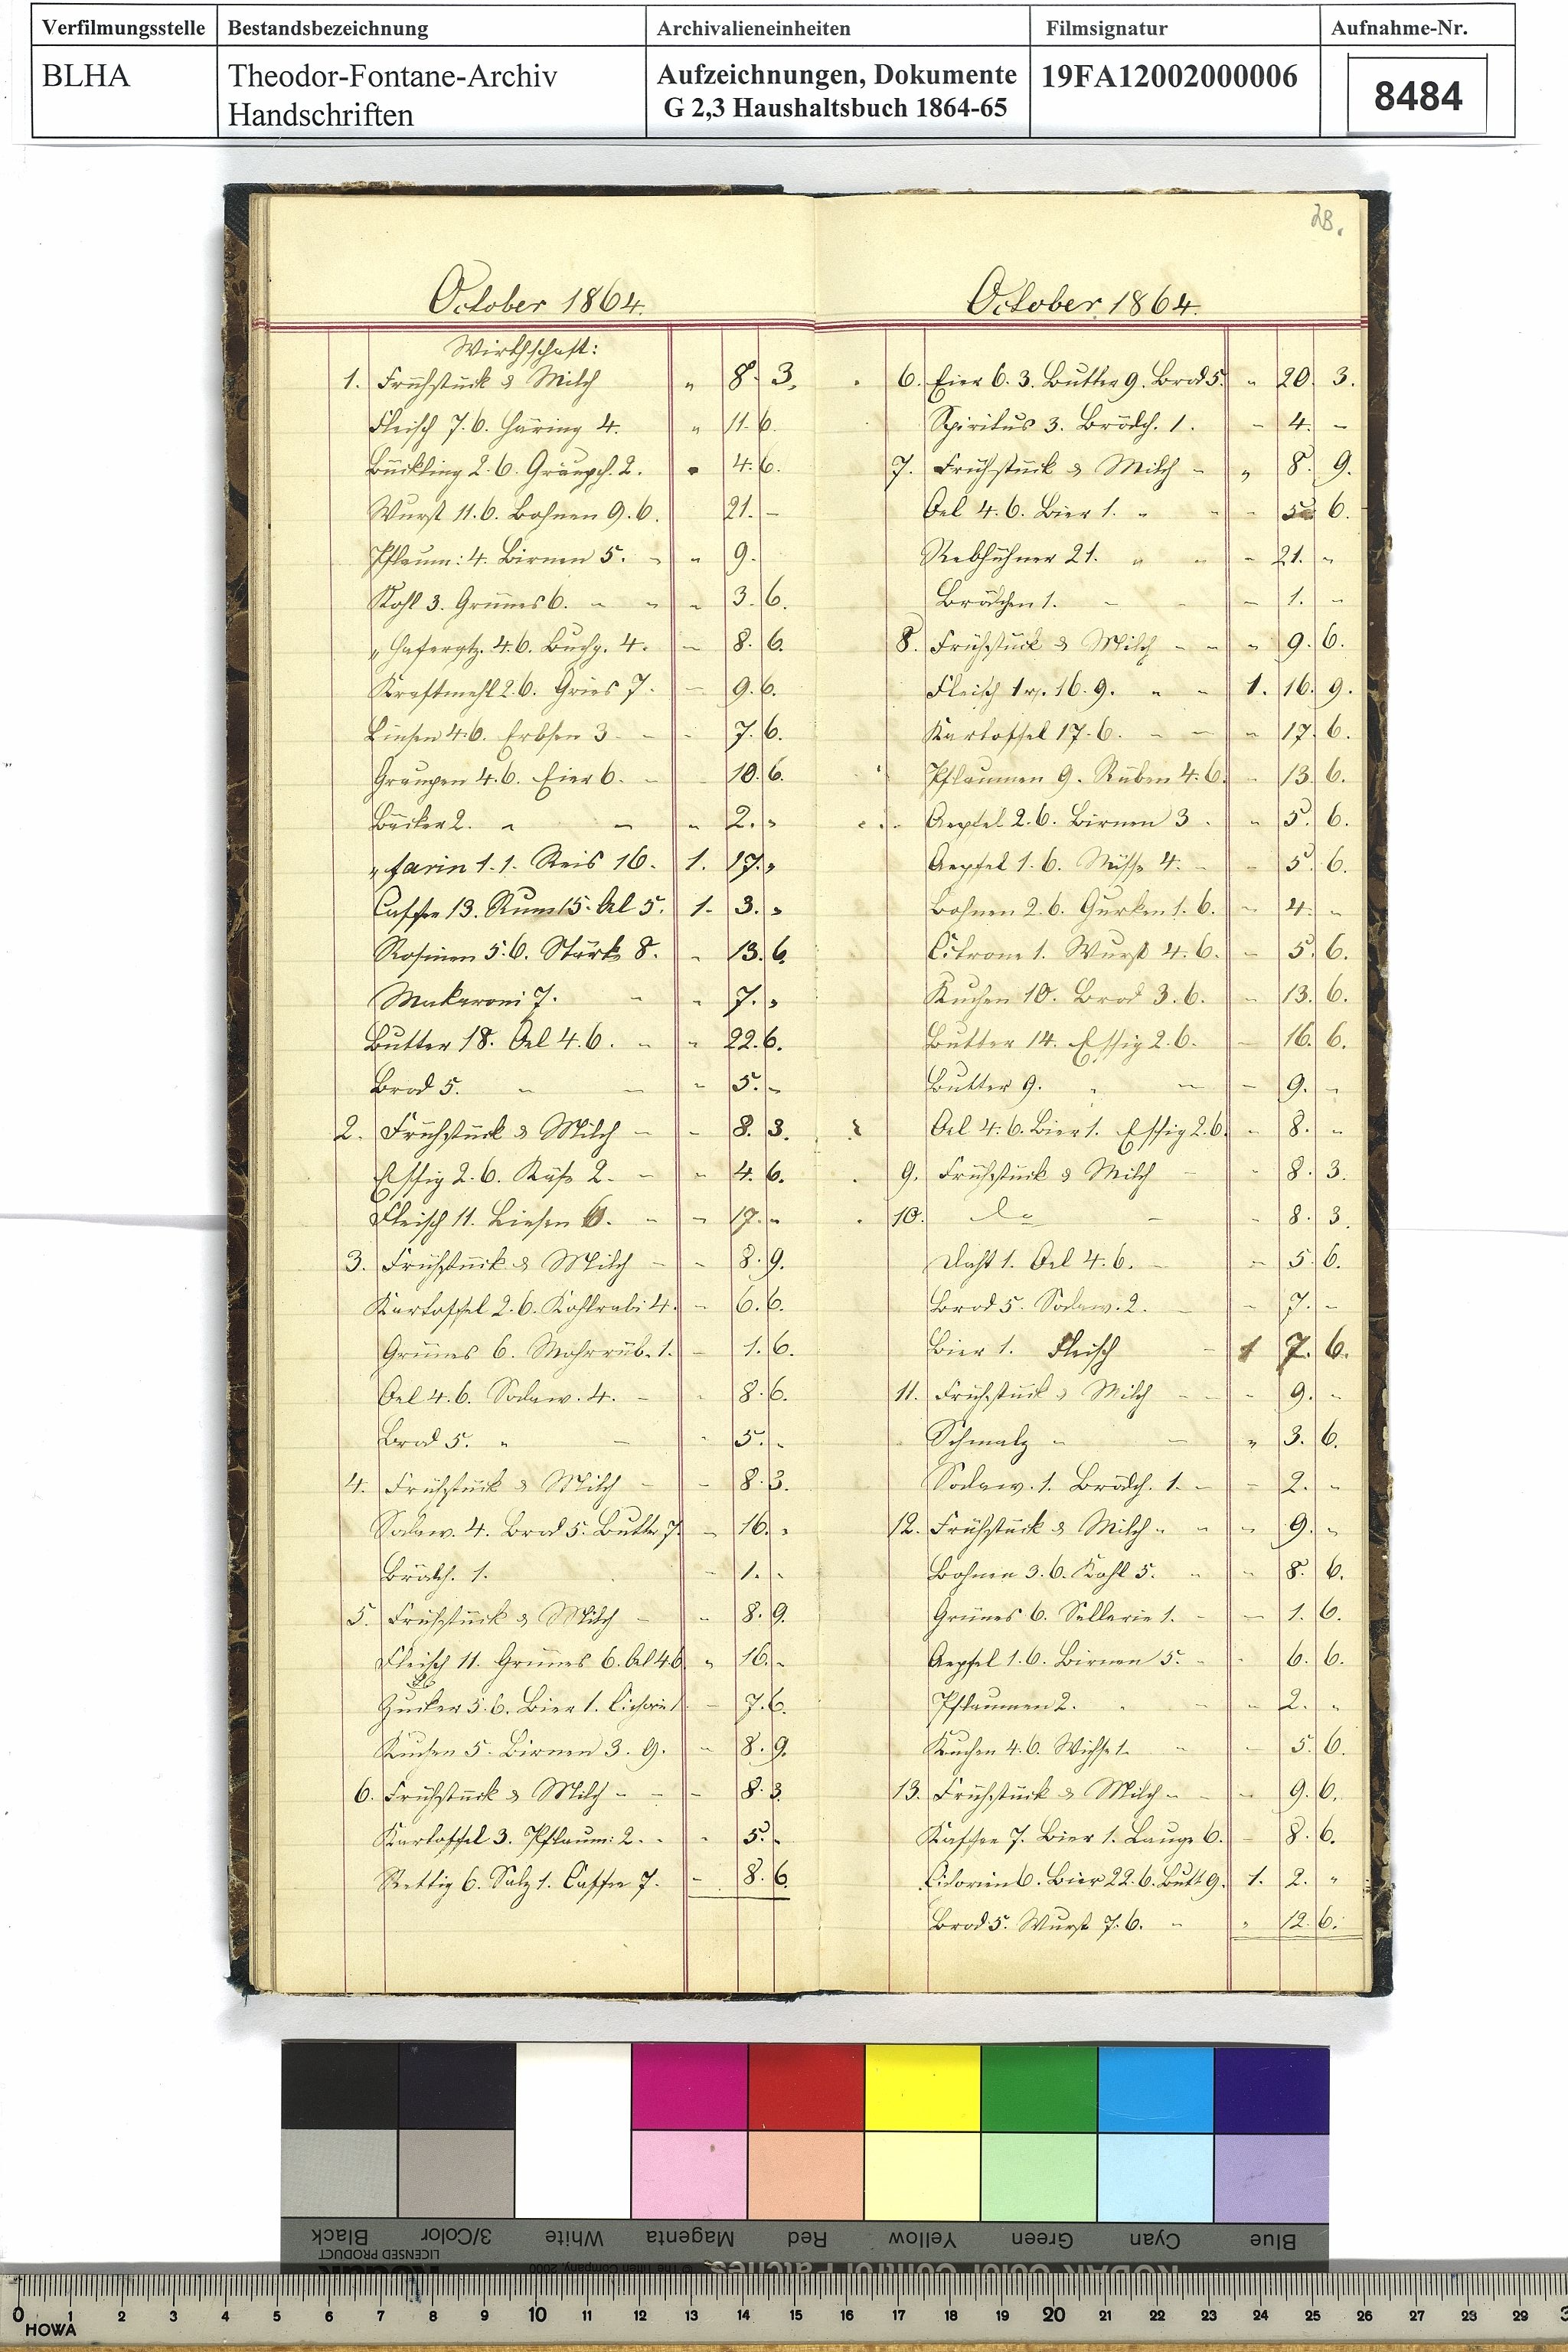 Verfilmungsstelle Bestandsbezeichnung Archivalieneinheiten Filmsignatur Aufnahme-Nr.
BLHA Theodor-Fontane-Archiv Handschriften Aufzeichnungen, Dokumente G 2,3 Haushaltsbuch 1864-65 19FA12002000006 8484
October 1864.
Wirthschaft:
1. Frühstück & Milch " 8. 3.
Fleisch 7.6. Häring 4. " 11. 6.
Bückling 2.6. Gräupch. 2. " 4. 6.
Wurst 11.6. Bohnen 9.6. 21. -
Pflaum: 4. Birnen 5. - " 9.
Kohl 3. Grünes 6. - " " 3. 6.
" Hafergtz. 4.6. Buchg. 4. - 8. 6.
Kraftmehl 2.6. Gries 7. - 9. 6.
Linsen 4.6. Erbsen 3 - - 7. 6.
Graupen 4.6. Eier 6. - 10. 6.
Bäcker 2. " - " 2. "
" farin 1.1. Reis 16. 1. 17. "
Caffee 13. Rum 15. Oel 5. 1. 3. "
Rosinen 5.6. Stärke 8. - 13. 6.
Makaroni 7. - - 7. "
Butter 18. Oel 4.6. - " 22. 6.
Brod 5. - - - 5. -
2. Frühstück & Milch - - 8. 3.
Essig 2.6. Käse 2. - - 4. 6.
Fleisch 11. Linsen 6. - - 17. -
3. Frühstück & Milch - - 8. 9.
Kartoffel 2.6. Kohlrabi 4. - 6. 6.
Grünes 6. Mohrrüb. 1. - 1. 6.
Oel 4.6. Sodaw. 4. - - 8. 6.
Brod 5. " - - 5. -
4. Frühstück & Milch - - 8. 3.
Sodaw. 4. Brod 5. Butter 7. - 16. "
Brödch. 1. - 1. -
5. Frühstück & Milch - - 8. 9.
Fleisch 11. Grünes 6. Oel 4.6. " 16. -
Zucker 5.6. Bier 1. Cichorie 1. - 7. 6.
Kuchen 5. Birnen 3.9. - 8. 9.
6. Frühstück & Milch - - - 8. 3.
Kartoffel 3. Pflaum: 2. - - 5. -
Rettig 6. Salz 1. Caffee 7. - 8. 6.
28.
October 1864.
6. Eier 6.3. Butter 9. Brod 5. " 20. 3.
Spiritus 3. Brödch. 1. - 4. -
7. Frühstück & Milch - " 8. 9.
Oel 4.6. Bier 1. - - - 5. 6.
Rebhühner 21. " - - 21. "
Brödchen 1. - - - 1. -
8. Frühstück & Milch - - " 9. 6.
Fleisch 1 rt. 16.9. " - 1. 16. 9.
Kartoffel 17.6. - - " 17. 6.
Pflaumen 9. Rüben 4.6. - 13. 6.
Aepfel 2.6. Birnen 3. " 5. 6.
Aepfel 1.6. Nüsse 4. - - 5. 6.
Bohnen 2.6. Gurken 1.6. - 4. -
Citrone 1. Wurst 4.6. - 5. 6.
Kuchen 10. Brod 3.6. - 13. 6.
Butter 14. Essig 2.6. - 16. 6.
Butter 9. " - - 9. -
Oel 4.6. Bier 1. Essig 2.6. - 8. "
9. Frühstück & Milch - - 8. 3.
10. do - - 8. 3.
Docht 1. Oel 4.6. - - 5. 6.
Brod 5. Sodaw. 2. - - 7. -
Bier 1. Fleisch - 1 7. 6.
11. Frühstück & Milch - - - 9. -
Schmalz - - " 3. 6.
Sodaw. 1. Brödch. 1. - - 2. -
12. Frühstück & Milch - - - 9. "
Bohnen 3.6. Kohl 5. - - 8. 6.
Grünes 6. Sellerie 1. - - 1. 6.
Aepfel 1.6. Birnen 5. - - 6. 6.
Pflaumen 2. " - - 2. "
Kuchen 4.6. Wichse 1. - - 5. 6.
13. Frühstück & Milch - - - 9. 6.
Kaffee 7. Bier 1. Lauge 6. - 8. 6.
Cichorien 6. Bier 22.6. Butt 9. 1. 2. "
Brod 5. Wurst 7.6. - " 12. 6.
Black 3/Color White Magenta Red Yellow Green Cyan Blue
LICENSED PRODUCT
Kodak © The Tiffen Company, 2000 KODAK Color Control Patches
0 1 2 3 4 5 6 7 8 9 10 11 12 13 14 15 16 17 18 19 20 21 22 23 24 25 26 27 28 29 3
HOWA